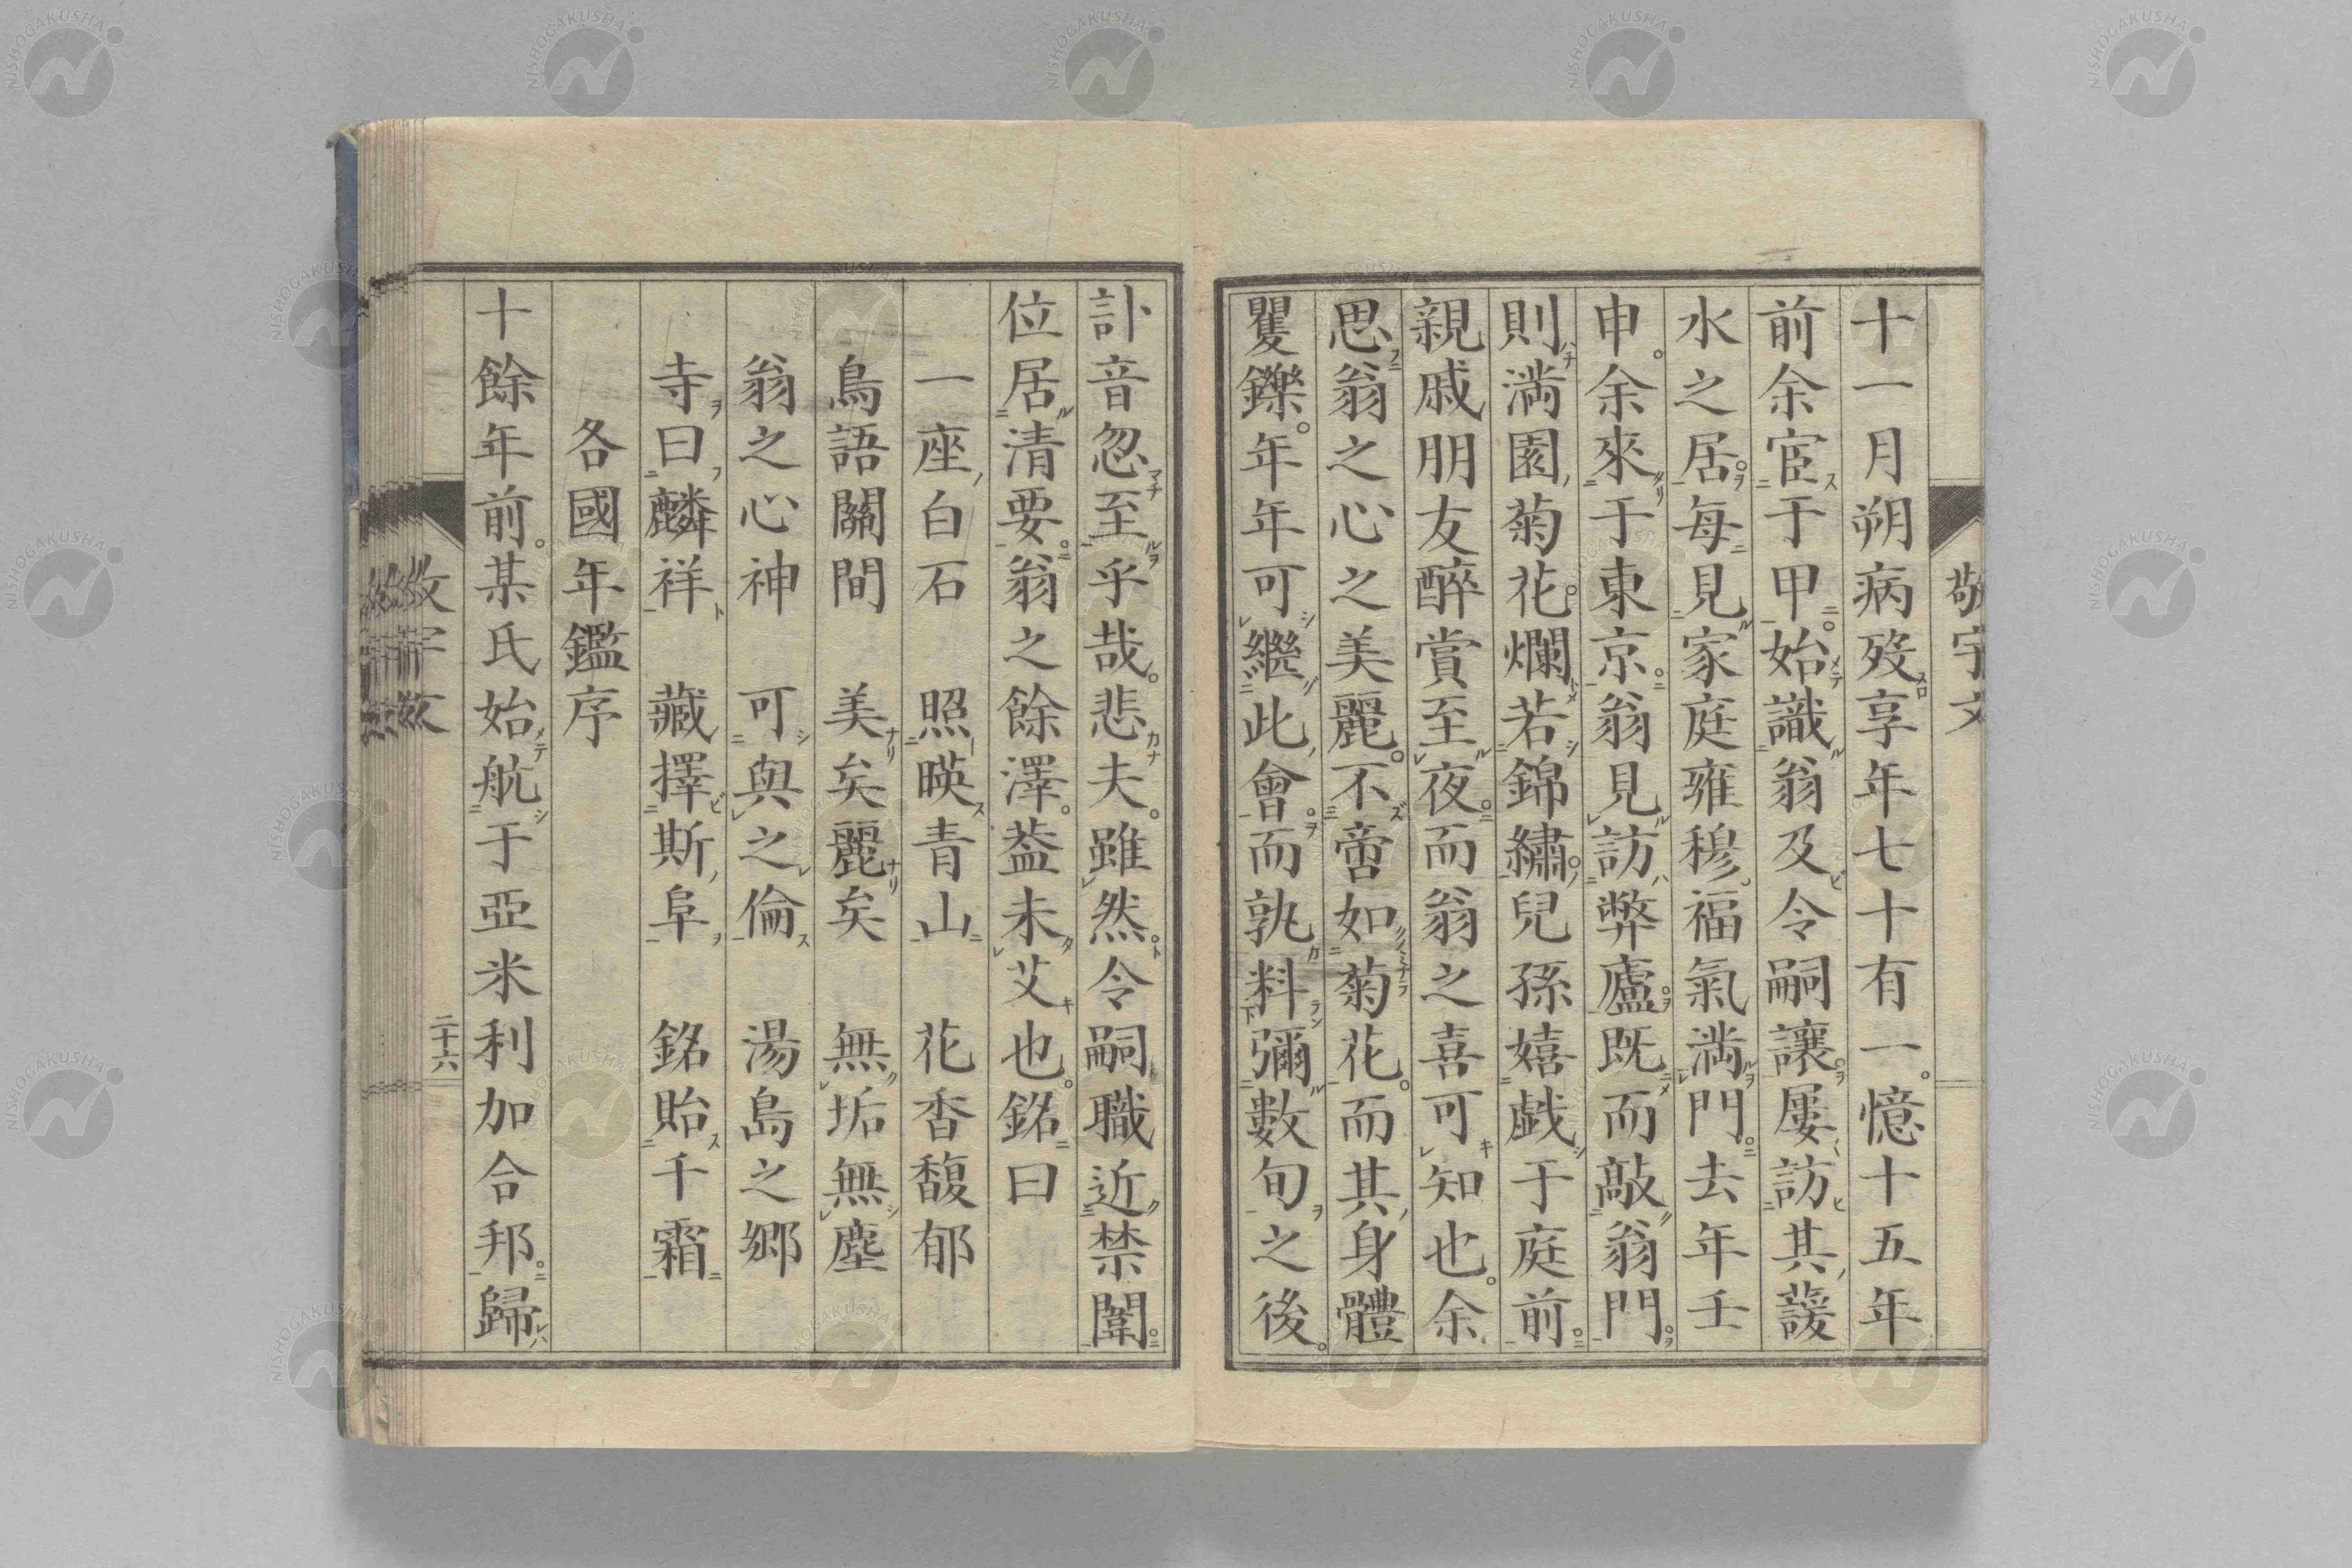 十一月朔病歿享年七十有一。憶十五年
前余宦于甲。始識翁及令嗣讓。屢訪其萲
水之居。每見家庭雍穆。福氣滿門。去年壬
申。余來于東京。翁見訪弊廬。既而敲翁門。
則滿園菊花。爛若錦繡。兒孫嬉戯于庭前。
親戚朋友醉賞至夜。而翁之喜可知也。余
思翁之心之美麗。不啻如菊花。而其身體
矍鑠。年年可繼此會。而孰料彌數旬之後。
訃音忽至乎哉。悲夫。雖然。令嗣職近禁闈。
位居清要。翁之餘澤。葢未艾也。銘曰
一座白石　照暎青山　花香馥郁
鳥語關間　美矣麗矣　無垢無塵
翁之心神　可與之倫　湯島之郷
寺曰麟祥　藏擇斯阜　銘貽千霜
各國年鑑序
十餘年前。某氏始航于亞米利加合邦。歸
敬宇文
二十六
NISHOGAKUSHA